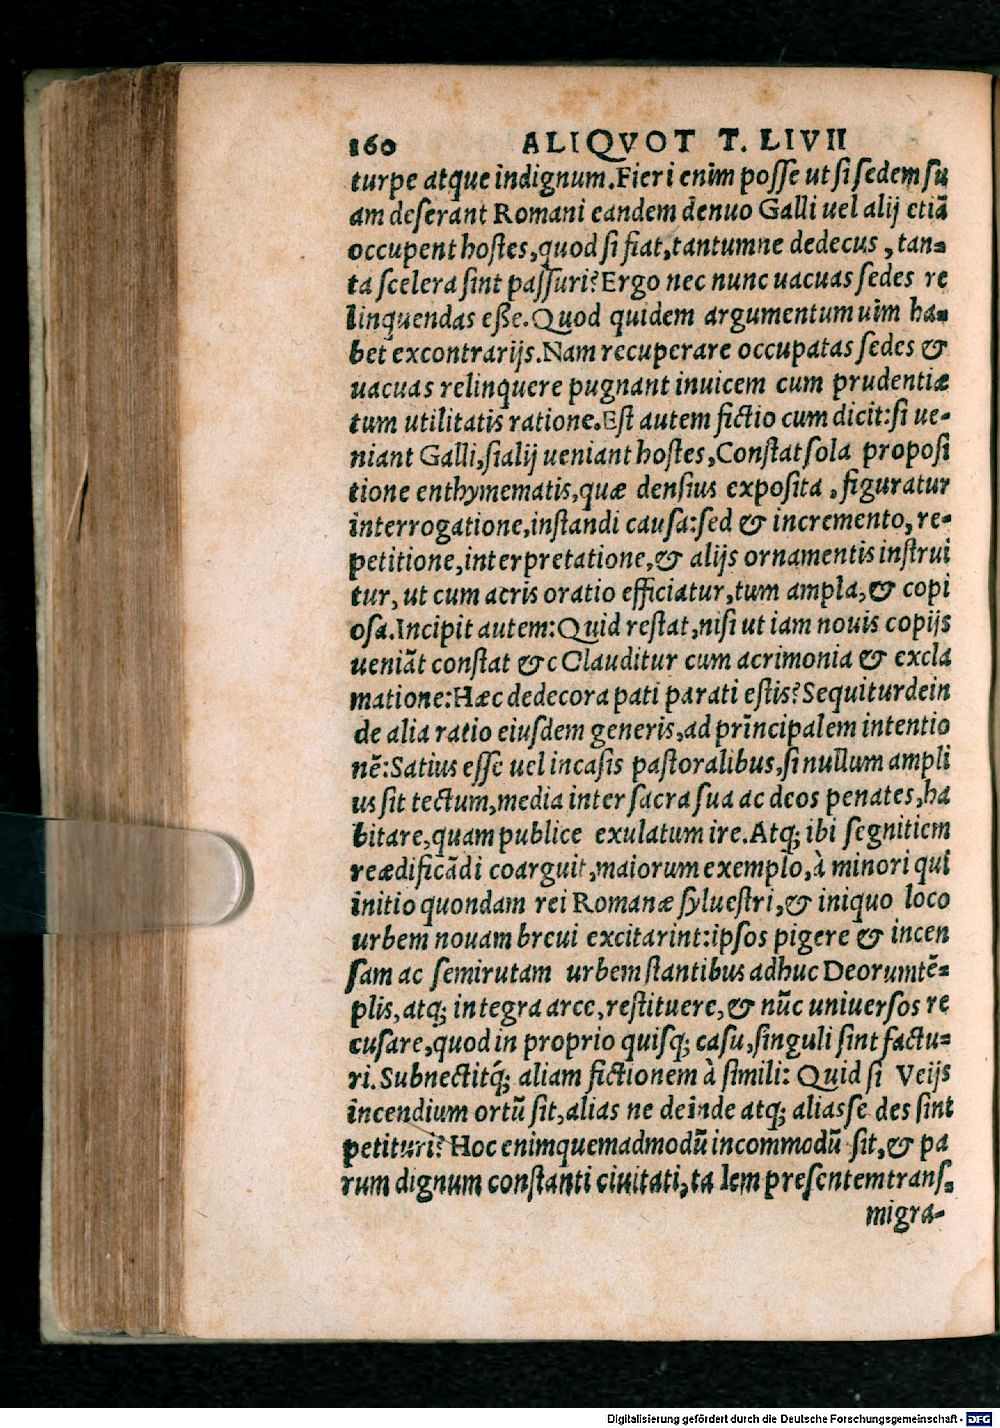 160 ALIQVOT T. LIVII
turpe atque indignum. Fieri enim posse ut si sedem su
am deserant Romani eandem denuo Galli uel alij etiã
occupent hostes, quod si fiat, tantumne dedecus, tan-
ta scelera sint passuri? Ergo nec nunc uacuas sedes re
linquendas eße. Quod quidem argumentum uim ha-
bet excontrarijs. Nam recuperare occupatas sedes &
uacuas relinquere pugnant inuicem cum prudentiæ
tum utilitatis ratione. Est autem fictio cum dicit: si ue-
niant Galli, si alij ueniant hostes, Constat sola proposi
tione enthymematis, quæ densius exposita, figuratur
interrogatione, instandi causa: sed & incremento, re-
petitione, interpretatione, & alijs ornamentis instrui
tur, ut cum acris oratio efficiatur, tum ampla, & copi
osa. Incipit autem: Quid restat, nisi ut iam nouis copijs
ueniãt constat &c Clauditur cum acrimonia & excla
matione: Hæc dedecora pati parati estis? Sequitur dein
de alia ratio eiusdem generis, ad prĩncipalem intentio
nẽ: Satius esse uel in casis pastoralibus, si nullum ampli
us sit tectum, media inter sacra sua ac deos penates, ha
bitare, quam publice exulatum ire. Atq; ibi segnitiem
reædificãdi coarguit, maiorum exemplo, à minori qui
initio quondam rei Romanæ syluestri, & iniquo loco
urbem nouam breui excitarint: ipsos pigere & incen
sam ac semirutam urbem stantibus adhuc Deorum tẽ-
plis, atq; integra arce, restituere, & nũc uniuersos re
cusare, quod in proprio quisq; casu, singuli sint factu-
ri. Subnectitq́; aliam fictionem à simili: Quid si Veijs
incendium ortũ sit, alias ne deinde atq; alias se des sint
petituri? Hoc enim quemadmodũ incommodũ sit, & pa
rum dignum constanti ciuitati, ta lem presentem trans-
migra-
Digitalisierung gefördert durch die Deutsche Forschungsgemeinschaft - DFG